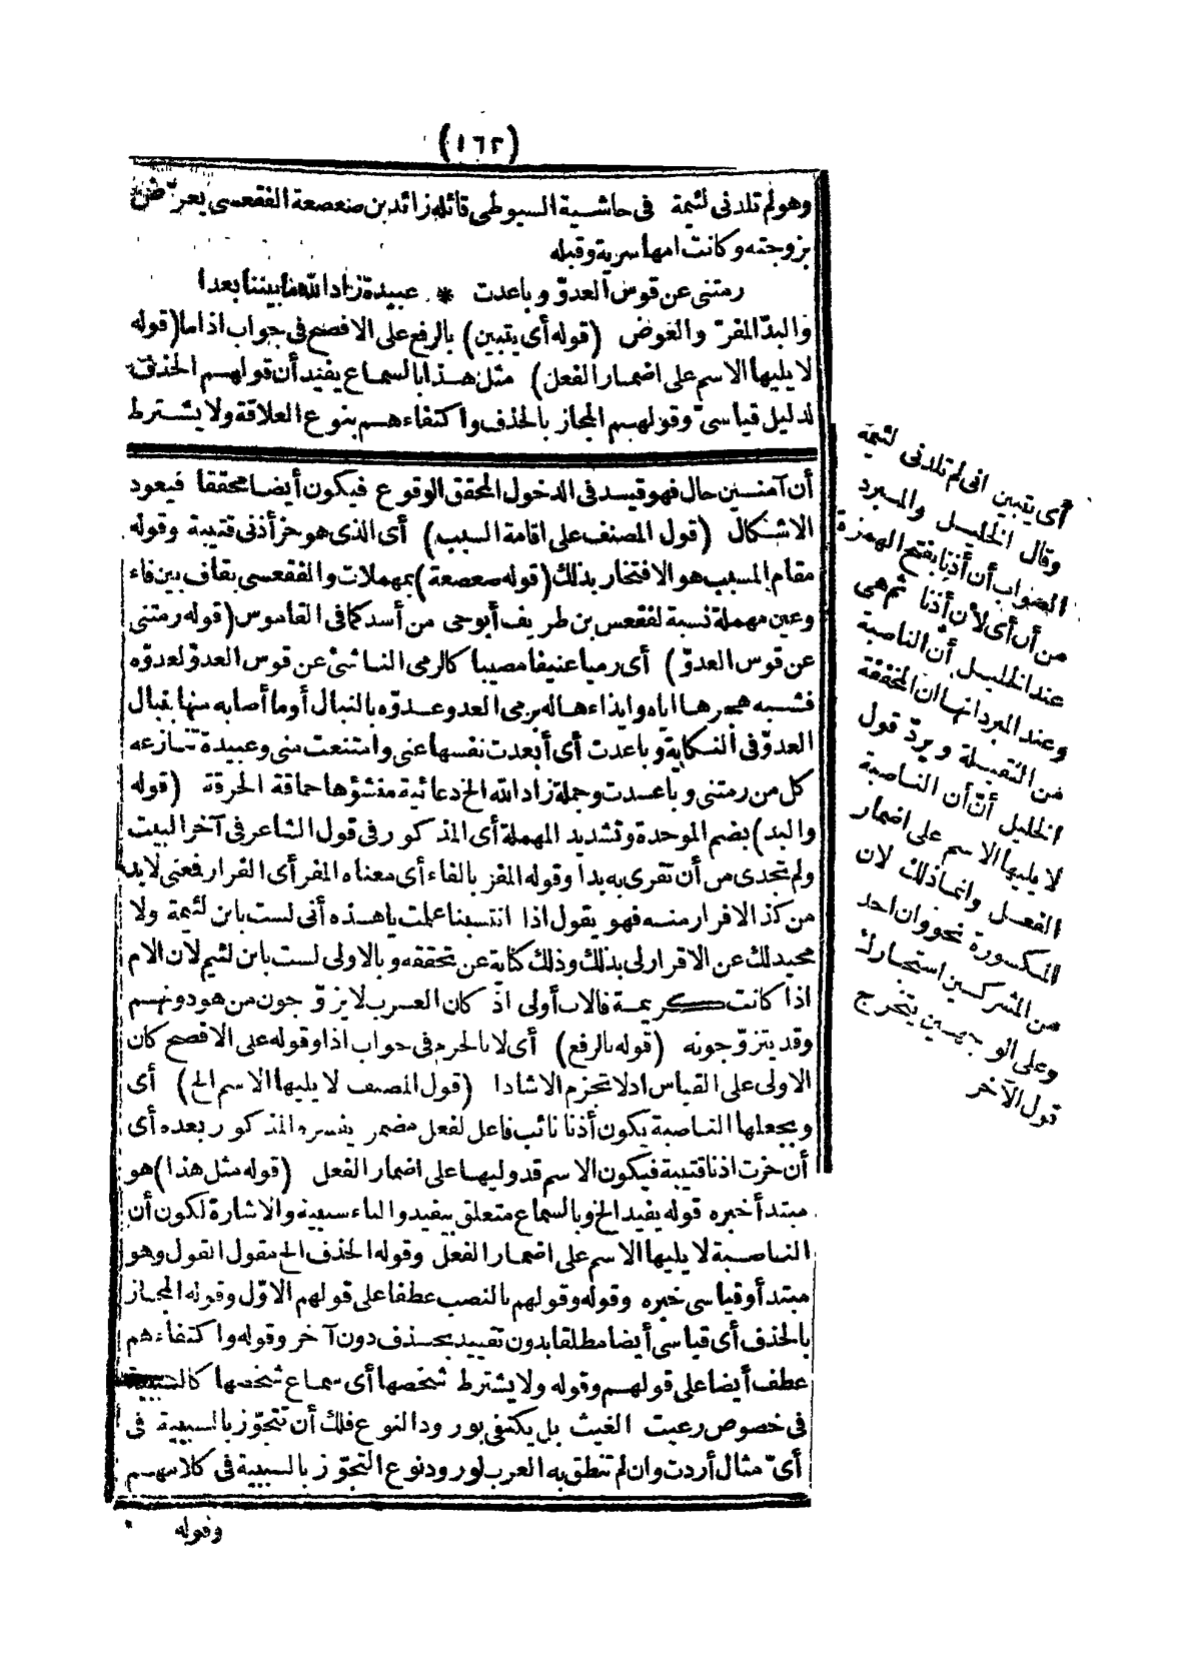 (١٦٢)
وهو لم تلدنى لئيمة فى حاشية السيوطى قائله زائد بن صعصعة الفقعسى يعرّض
بزوجته وكانت امها سرية وقبله
رمتنى عن قوس العدوّ وباعدت * عبيدة زاد الله ما بيننا بعدا
والبدّ المفرّ والعوض (قوله أى يتبين) بالرفع على الافصح فى جواب اذا ما (قوله
لا يليها الاسم على اضمار الفعل) مثل هذا بالسماع يفيد أن قولهم الحذف
لدليل قياسىّ وقولهم المجاز بالحذف واكتفاءهم بنوع العلاقة ولا يشترط
أن آمنين حال فهو قيد فى الدخول المحقق الوقوع فيكون أيضا محققا فيعود
الاشكال (قول المصنف على اقامة السبب) أى الذى هو حز أذنى قتيبة وقوله
مقام المسبب هو الافتخار بذلك (قوله صعصعة) بمهملات والفقعسى بقاف بين فاء
وعين مهملة نسبة لفقعس بن طريف أبو حى من أسد كما فى القاموس (قوله رمتنى
عن قوس العدوّ) أى رميا عنيفا مصيبا كالرمى الناشئ عن قوس العدوّ لعدوّه
فشبه هجرها اياه وايذاءها له برمى العدو عدوّه بالنبال أو ما أصابه منها بنبال
العدوّ فى النكاية وباعدت أى أبعدت نفسها عنى وامتنعت منى وعبيدة تنازعه
كل من رمتنى وباعدت وجملة زاد الله الخ دعائية منشؤها حماقة الحرقة (قوله
والبد) بضم الموحدة وتشديد المهملة أى المذكور فى قول الشاعر فى آخر البيت
ولم تجدى من أن تقرى به بدا وقوله المفر بالفاء أى معناه المفر أى الفرار فعنى لابد
من كذا لافرار منه فهو يقول اذا انتسبنا علمت يا هذه أنى لست بابن لئيمة ولا
محيد لك عن الاقرار لى بذلك وذلك كناية عن تحققه وبالاولى لست بابن لئيم لان الام
اذا كانت كريمة فالاب أولى اذ كان العرب لا يزوّجون من هو دونهم
وقد يتزوّجونه (قوله بالرفع) أى لا بالجزم فى جواب اذا وقوله على الافصح كان
الاولى على القياس اذ لا تجزم الا شاذا (قول المصنف لا يليها الاسم الخ) أى
وبجعلها الناصبة يكون أذنا نائب فاعل لفعل مضمر يفسره المذكور بعده أى
أن حزت اذنا قتيبة فيكون الاسم قد وليها على اضمار الفعل (قوله مثل هذا) هو
مبتدأ خبره قوله يفيد الخ وبالسماع متعلق بيفيد والباء سببية والاشارة لكون أن
الناصبة لا يليها الاسم على اضمار الفعل وقوله الحذف الخ مقول القول وهو
مبتدأ وقياسى خبره وقوله وقولهم بالنصب عطفا على قولهم الاوّل وقوله المجاز
بالحذف أى قياسى أيضا مطلقا بدون تقييد بحذف دون آخر وقوله واكتفاءهم
عطف أيضا على قولهم وقوله ولا يشترط شخصها أى سماع شخصها كالسببية
فى خصوص رعيت الغيث بل يكتفى بورود النوع فلك أن تتجوّز بالسببية فى
أىّ مثال أردت وان لم تنطق به العرب لورود نوع التجوّز بالسببية فى كلامهم
وقوله
أى يتبين انى لم تلدنى لئيمة
وقال الخليل والمبرد
الصواب أن أذنا بفتح الهمزة
من أن أى لأن أذنا ثم هى
عند الخليل أن الناصبة
وعند المبرد انها ان المخففة
من الثقيلة ويردّ قول
الخليل أنّ أن الناصبة
لا يليها الاسم على اضمار
الفعل وانما ذلك لان
المكسورة نحو وان احد
من المشركين استجارك
وعلى الوجهين يتخرج
قول الآخر